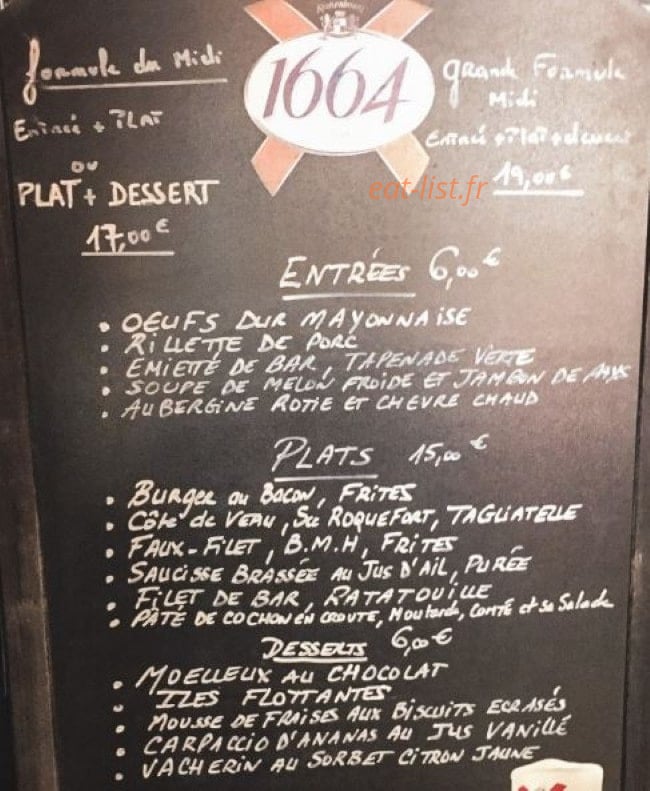 Kronenbourg
1664
Formule du Midi
Entrée + PLAT
ou
PLAT + DESSERT
17,00€
Grande Formule
Midi
Entrée + Plat + dessert
19,00€
eat-list.fr
ENTRÉES 6,00€
• OEUFS DUR MAYONNAISE
• RILLETTE DE PORC
• EMIETTÉ DE BAR, TAPENADE VERTE
• SOUPE DE MELON FROIDE ET JAMBON DE PAYS
• AUBERGINE ROTIE ET CHEVRE CHAUD
PLATS 15,00€
• BURGER au BACON, FRITES
• Côte de VEAU, Sce ROQUEFORT, TAGLIATELLE
• FAUX-FILET, B.M.H, FRITES
• SAUCISSE BRASSÉE AU JUS D'AIL, PURÉE
• FILET DE BAR, RATATOUILLE
• PÂTÉ DE COCHON EN CROUTE, Moutarde, COMTÉ et sa Salade
DESSERTS 6,00€
• MOELLEUX AU CHOCOLAT
• ILES FLOTTANTES
• MOUSSE DE FRAISES AUX BISCUITS ECRASÉS
• CARPACCIO D'ANANAS AU JUS VANILLÉ
• VACHERIN AU SORBET CITRON JAUNE